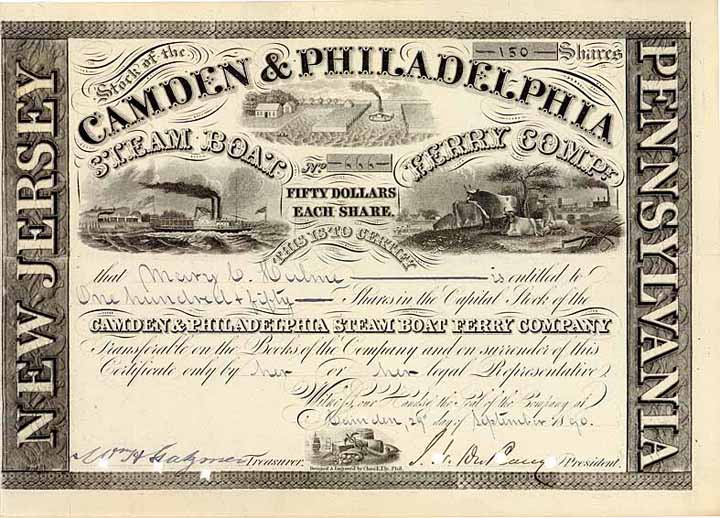 —150— Shares
Stock of the
CAMDEN & PHILADELPHIA
STEAM BOAT FERRY COMPY.
No. —666—
FIFTY DOLLARS
EACH SHARE.
THIS IS TO CERTIFY
that Mary C. Hulme is entitled to
One hundred & fifty Shares in the Capital Stock of the
CAMDEN & PHILADELPHIA STEAM BOAT FERRY COMPANY
Transferable on the Books of the Company and on surrender of this
Certificate only by her or her legal Representatives
Witness, our Hands & the Seal of the Company at
Camden, 29th day of September 1890.
Treasurer.
President.
Designed & Engraved by Chas. E. Ely. Phil.
NEW JERSEY
PENNSYLVANIA